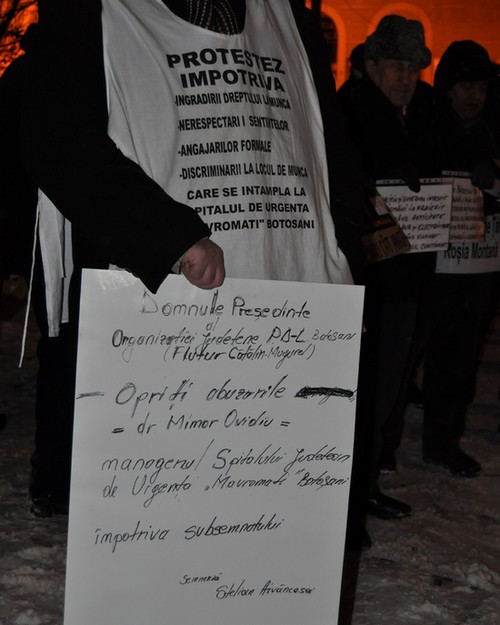 PROTESTEZ
IMPOTRIVA
-INGRADIRII DREPTULUI LA MUNCA
-NERESPECTARII SENTINTELOR
-ANGAJARILOR FORMALE
-DISCRIMINARII LA LOCUL DE MUNCA
CARE SE INTAMPLA LA
SPITALUL DE URGENTA
"MAVROMATI" BOTOSANI
Domnule Președinte
al
Organizației Județene PD-L Botoșani
(Flutur Cătălin-Mugurel)
- Opriți abuzurile
= dr Mimor Ovidiu =
managerul Spitalului Județean
de Urgența „Mavromati" Botoșani
împotriva subsemnatului
Semnează
Stelian Aivăncesei
Roșia Montană